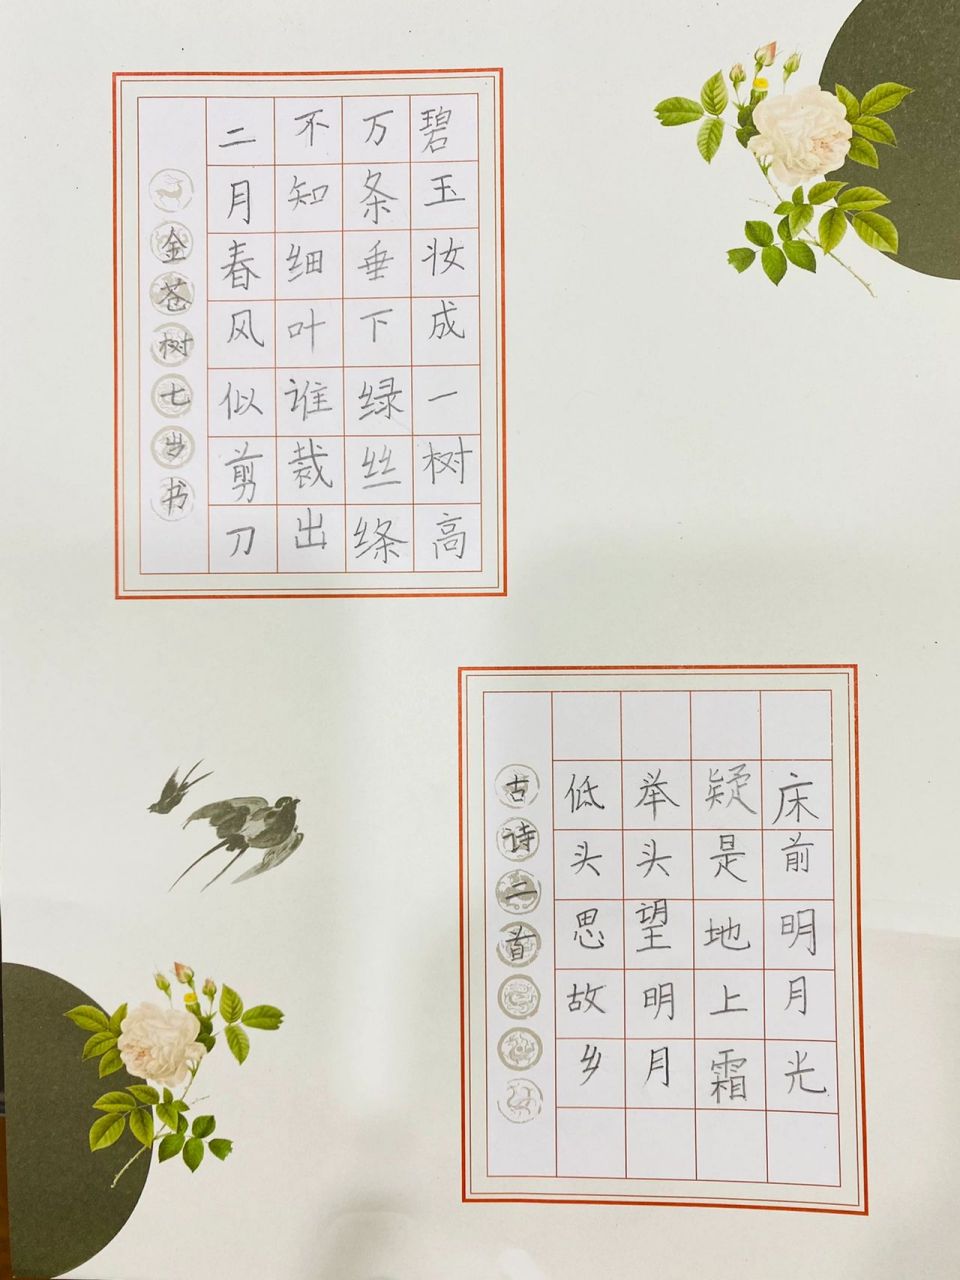 碧玉妆成一树高
万条垂下绿丝绦
不知细叶谁裁出
二月春风似剪刀
金苍树七岁书
床前明月光
疑是地上霜
举头望明月
低头思故乡
古诗二首